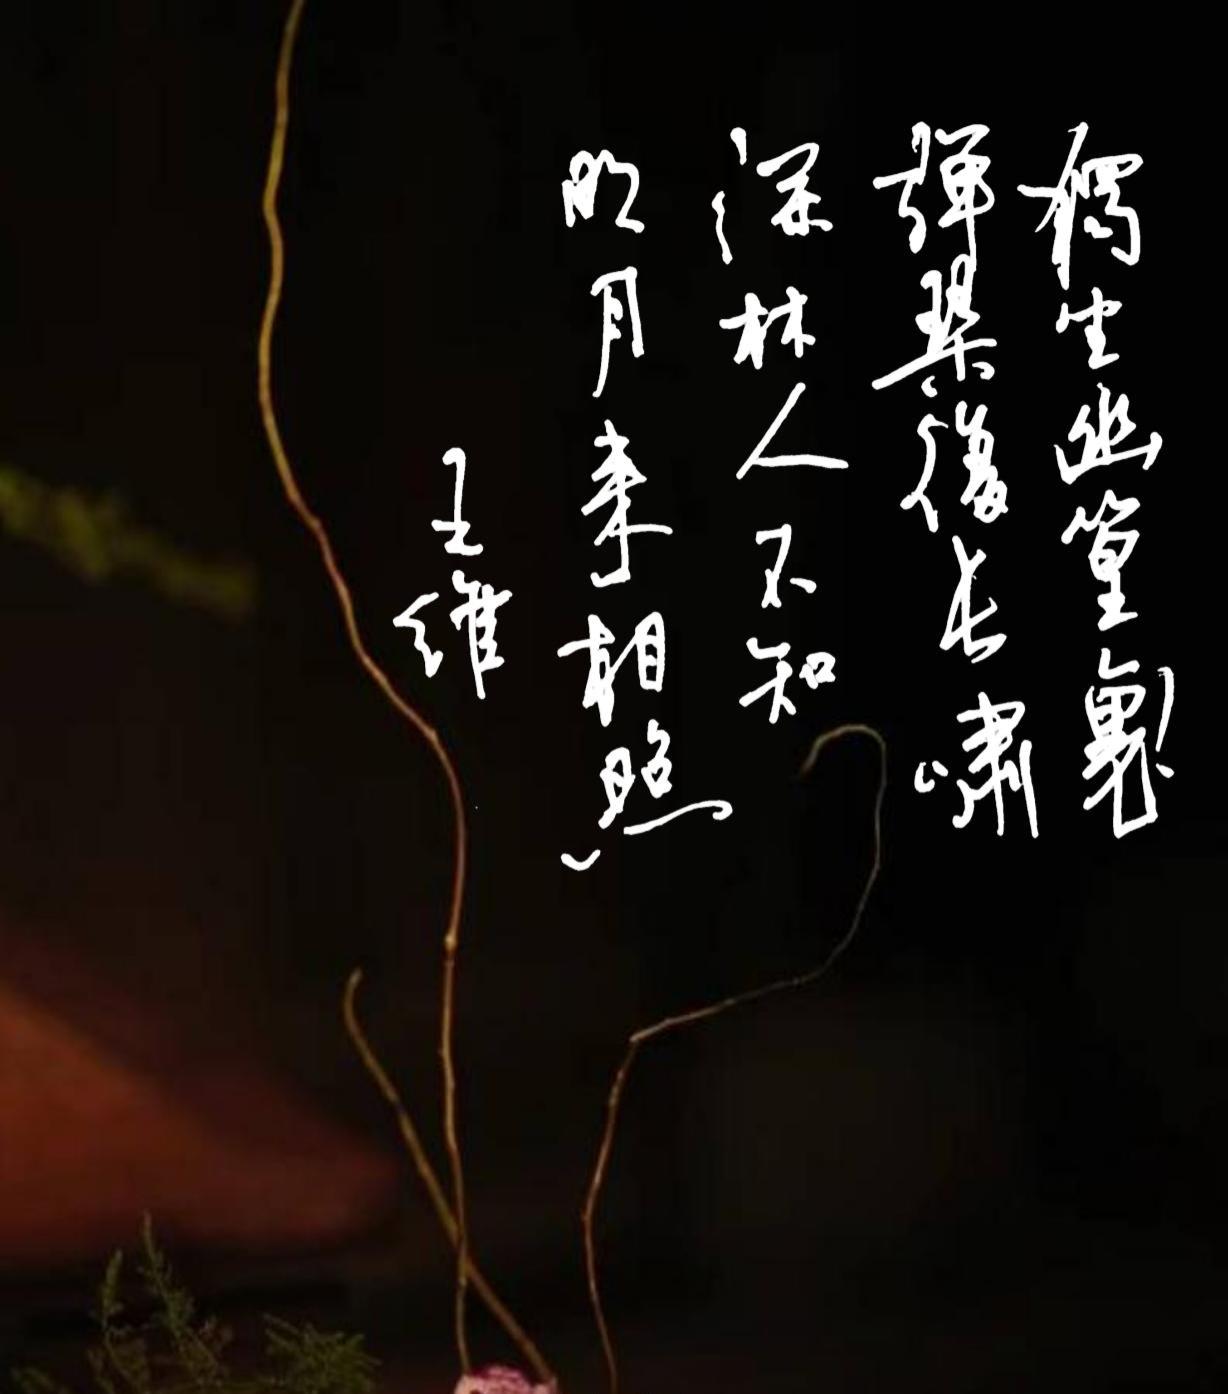 獨坐幽篁裏
彈琴復长嘯
深林人不知
明月来相照
王維